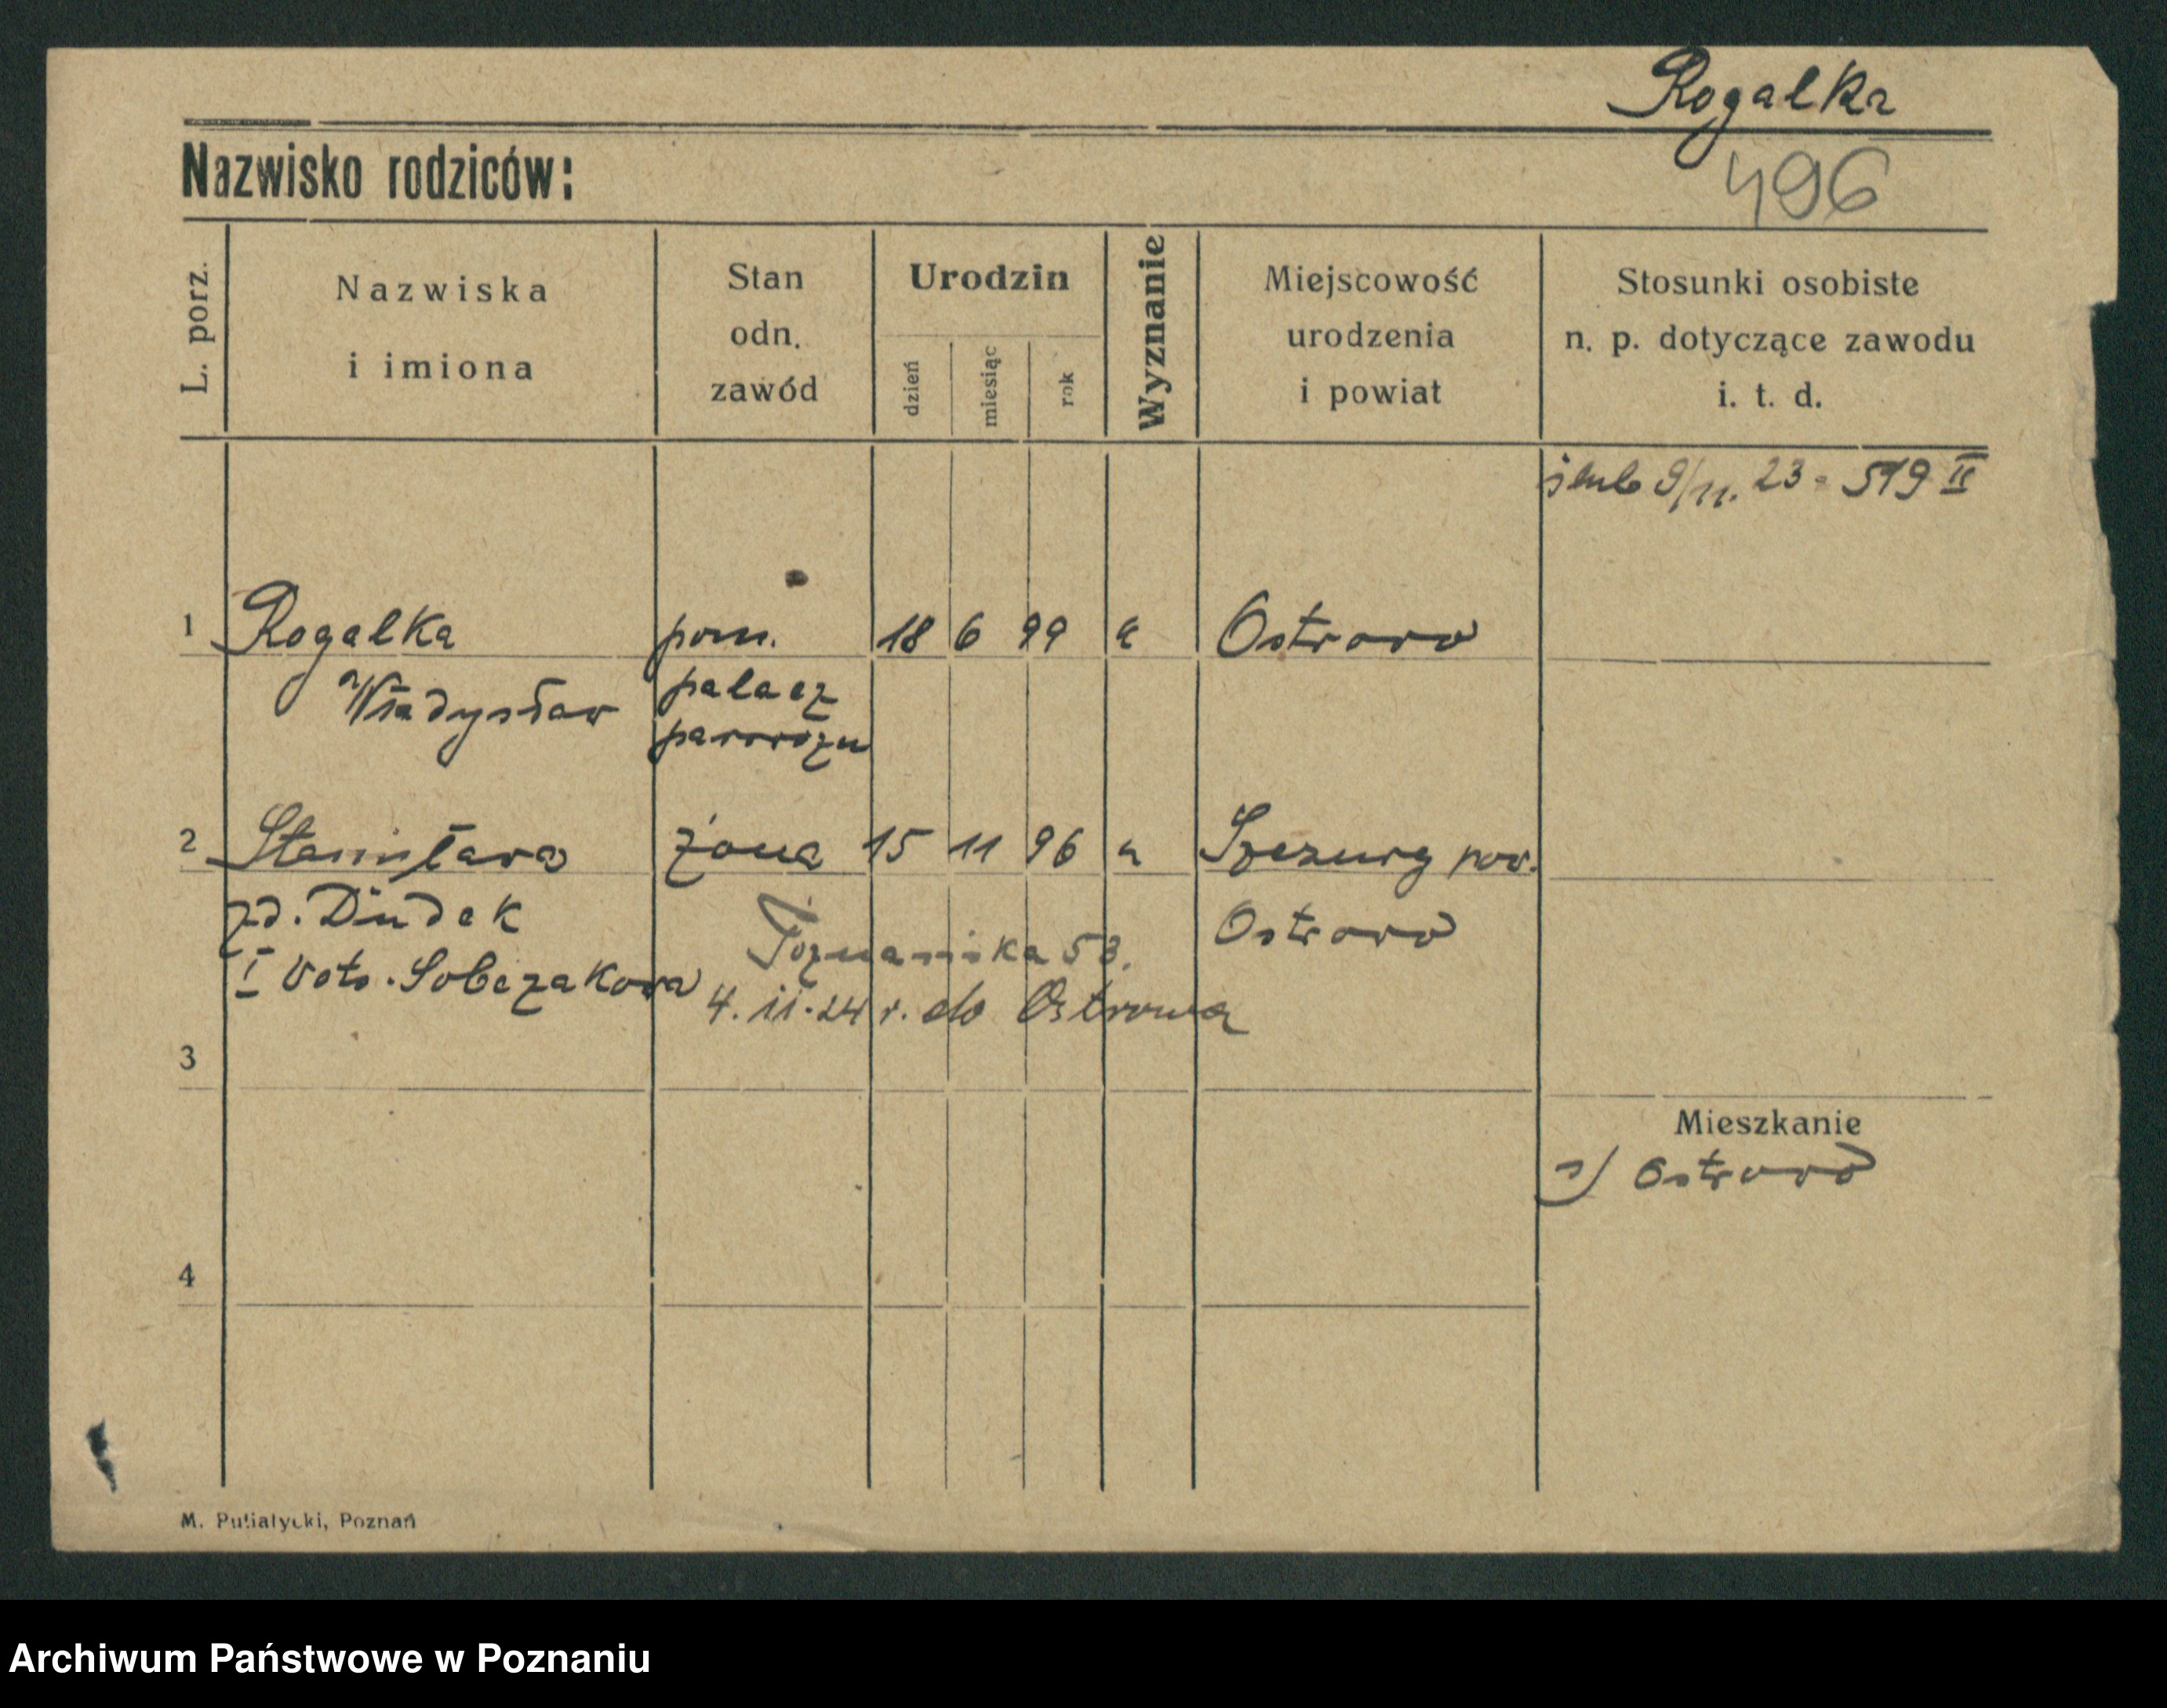 Rogalka
Nazwisko rodziców:
496
L. porz.
Nazwiska
i imiona
Stan
odn.
zawód
Urodzin
dzień
miesiąc
rok
Wyznanie
Miejscowość
urodzenia
i powiat
Stosunki osobiste
n. p. dotyczące zawodu
i. t. d.
ślub 9/11. 23 - 519 II
1 Rogalka pom. 18 6 99 k Ostrowo
Władysław palacz
parowozu
2 Stanisława żona 15 11 96 " Szczury pow.
zd. Dudek Ostrowo
Poznańska 53.
I Voto. Sobczakowa
4. 11. 24 r. do Ostrowa
3
Mieszkanie
1) Ostrowo
4
M. Putiatycki, Poznań
Archiwum Państwowe w Poznaniu